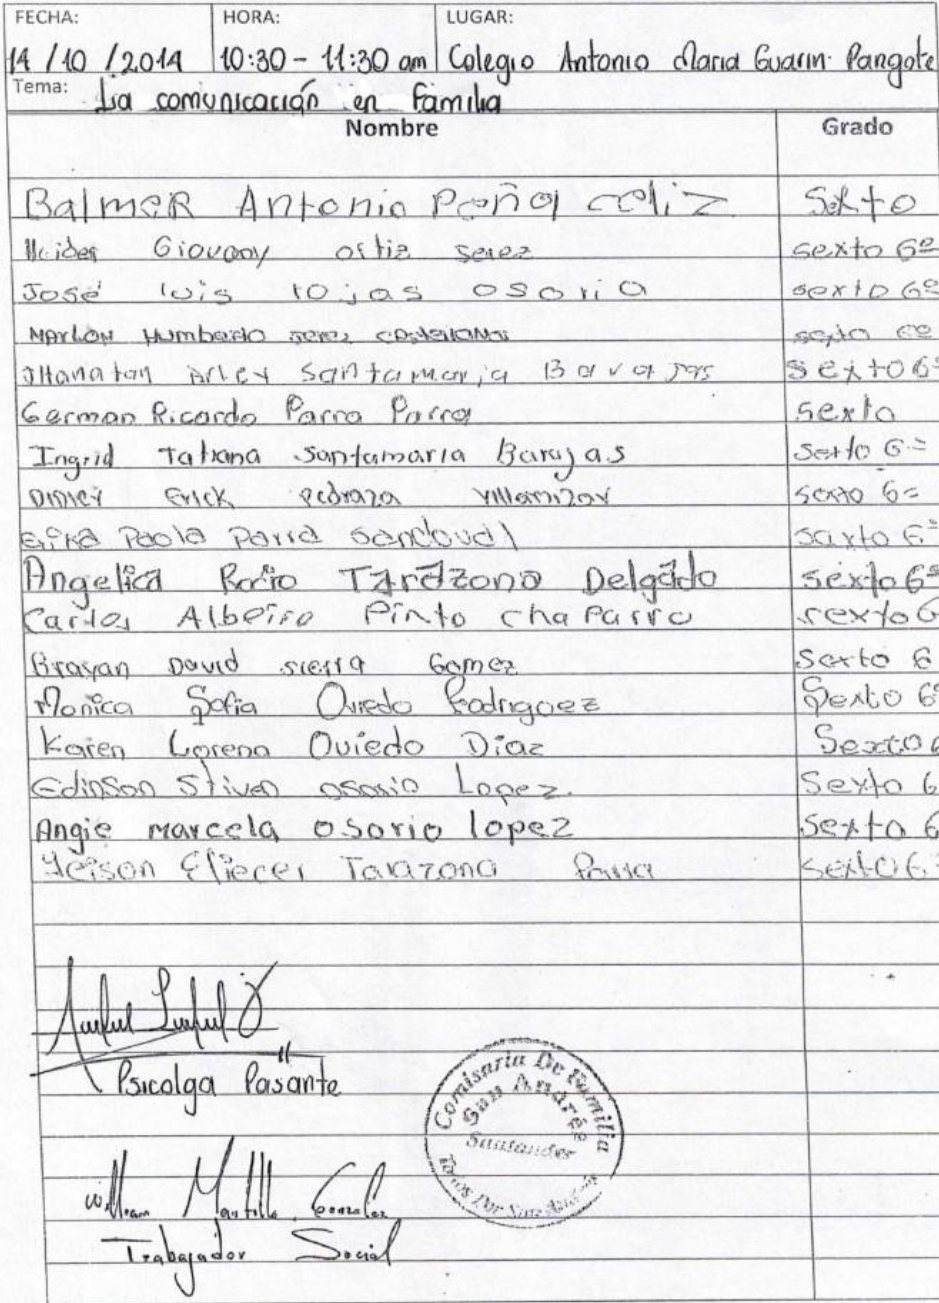 FECHA: HORA: LUGAR:
14 / 10 / 2014 10:30 - 11:30 am Colegio Antonio Maria Guarin Pangote
Tema: La comunicación en Familia
Nombre Grado
BalmeR Antonio Peña celiz Sexto
Giovany ortiz serez sexto 6º
José luis rojas osorio sexto 6º
MARLON Humberto jerez castellanos sexto 6º
JHonatan Arley Santamaria Barajas sexto 6º
German Ricardo Parra Parra sexto
Ingrid Tatiana Santamaria Barajas Sexto 6º
Erick pedraza villamizar sexto 6º
Erika Paola Parra Sandoval sexto 6º
Angelica Rocio Tarazona Delgado sexto 6º
Carlos Albeiro Pinto chaparro sexto 6
Brayan David sierra Gomez Sexto 6
Monica Sofia Oviedo Rodriguez Sexto 6º
Karen Lorena Oviedo Diaz Sexto 6
Edinson Stiven osorio Lopez Sexto 6
Angie marcela osorio lopez sexto 6
Yeison Eliecer Tarazona Parra sexto 6
Psicolga Pasante
Comisaria De Familia
San Andrés
Santander
Todos Por San Andrés
William Mantilla Gonzalez
Trabajador Social